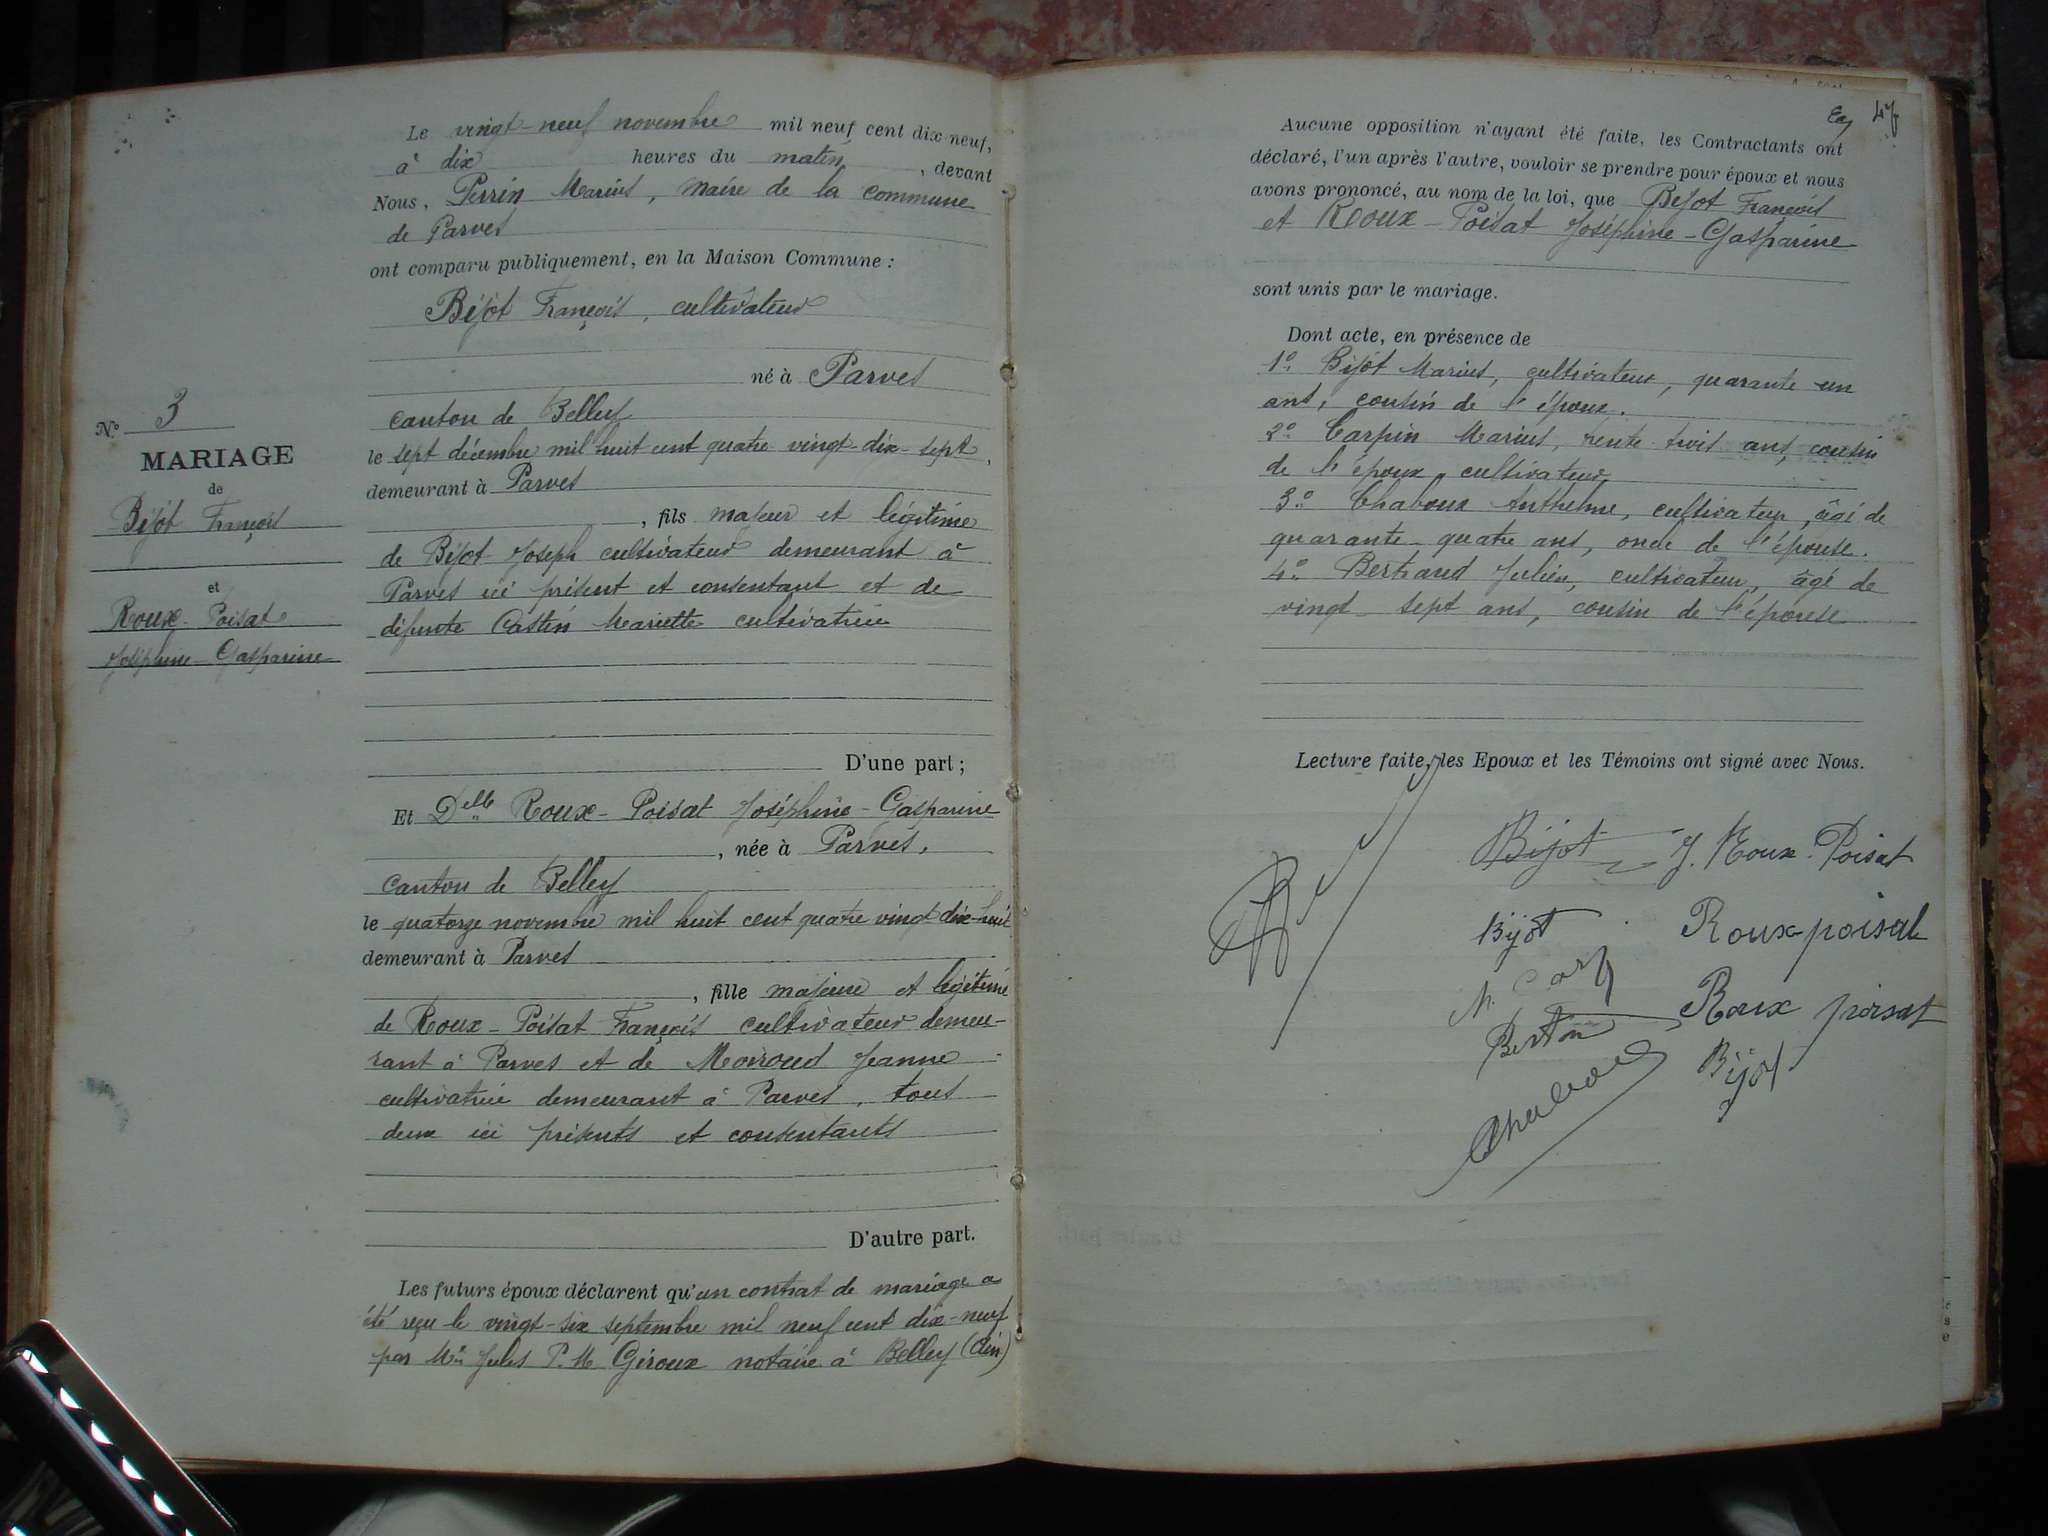 Le vingt-neuf novembre mil neuf cent dix-neuf,
à dix heures du matin, devant
Nous, Perrin Marius, maire de la commune
de Parves
ont comparu publiquement, en la Maison Commune :
Bijot François, cultivateur
né à Parves
canton de Belley
le sept décembre mil huit cent quatre vingt dix-sept,
demeurant à Parves
, fils majeur et légitime
de Bijot Joseph cultivateur demeurant à
Parves ici présent et consentant et de
défunte Castin Mariette cultivatrice
D'une part ;
Et Delle Roux-Poisat Joséphine-Gasparine
, née à Parves,
canton de Belley
le quatorze novembre mil huit cent quatre vingt dix-huit
demeurant à Parves
, fille majeure et légitime
de Roux-Poisat François cultivateur demeu-
rant à Parves et de Moiroud Jeanne
cultivatrice demeurant à Parves, tous
deux ici présents et consentants
D'autre part.
Les futurs époux déclarent qu'un contrat de mariage a
été reçu le vingt-six septembre mil neuf cent dix-neuf
par Me Jules P. M Giroux notaire à Belley (Ain)
No 3
MARIAGE
de
Bijot François
et
Roux-Poisat
Joséphine-Gasparine
47
Aucune opposition n'ayant été faite, les Contractants ont
déclaré, l'un après l'autre, vouloir se prendre pour époux et nous
avons prononcé, au nom de la loi, que Bijot François
et Roux-Poisat Joséphine-Gasparine
sont unis par le mariage.
Dont acte, en présence de
1o Bijot Marius, cultivateur, quarante-un
ans, cousin de l'époux.
2o Carpin Marius, trente trois ans, cousin
de l'époux, cultivateur
3o Chaboux Anthelme, cultivateur, âgé de
quarante-quatre ans, oncle de l'épouse.
4o Bertrand Julien, cultivateur, âgé de
vingt-sept ans, cousin de l'épouse
Lecture faite, les Epoux et les Témoins ont signé avec Nous.
Bijot J. Roux-Poisat
Bijot Roux-poisat
Roux poisat
Bijot